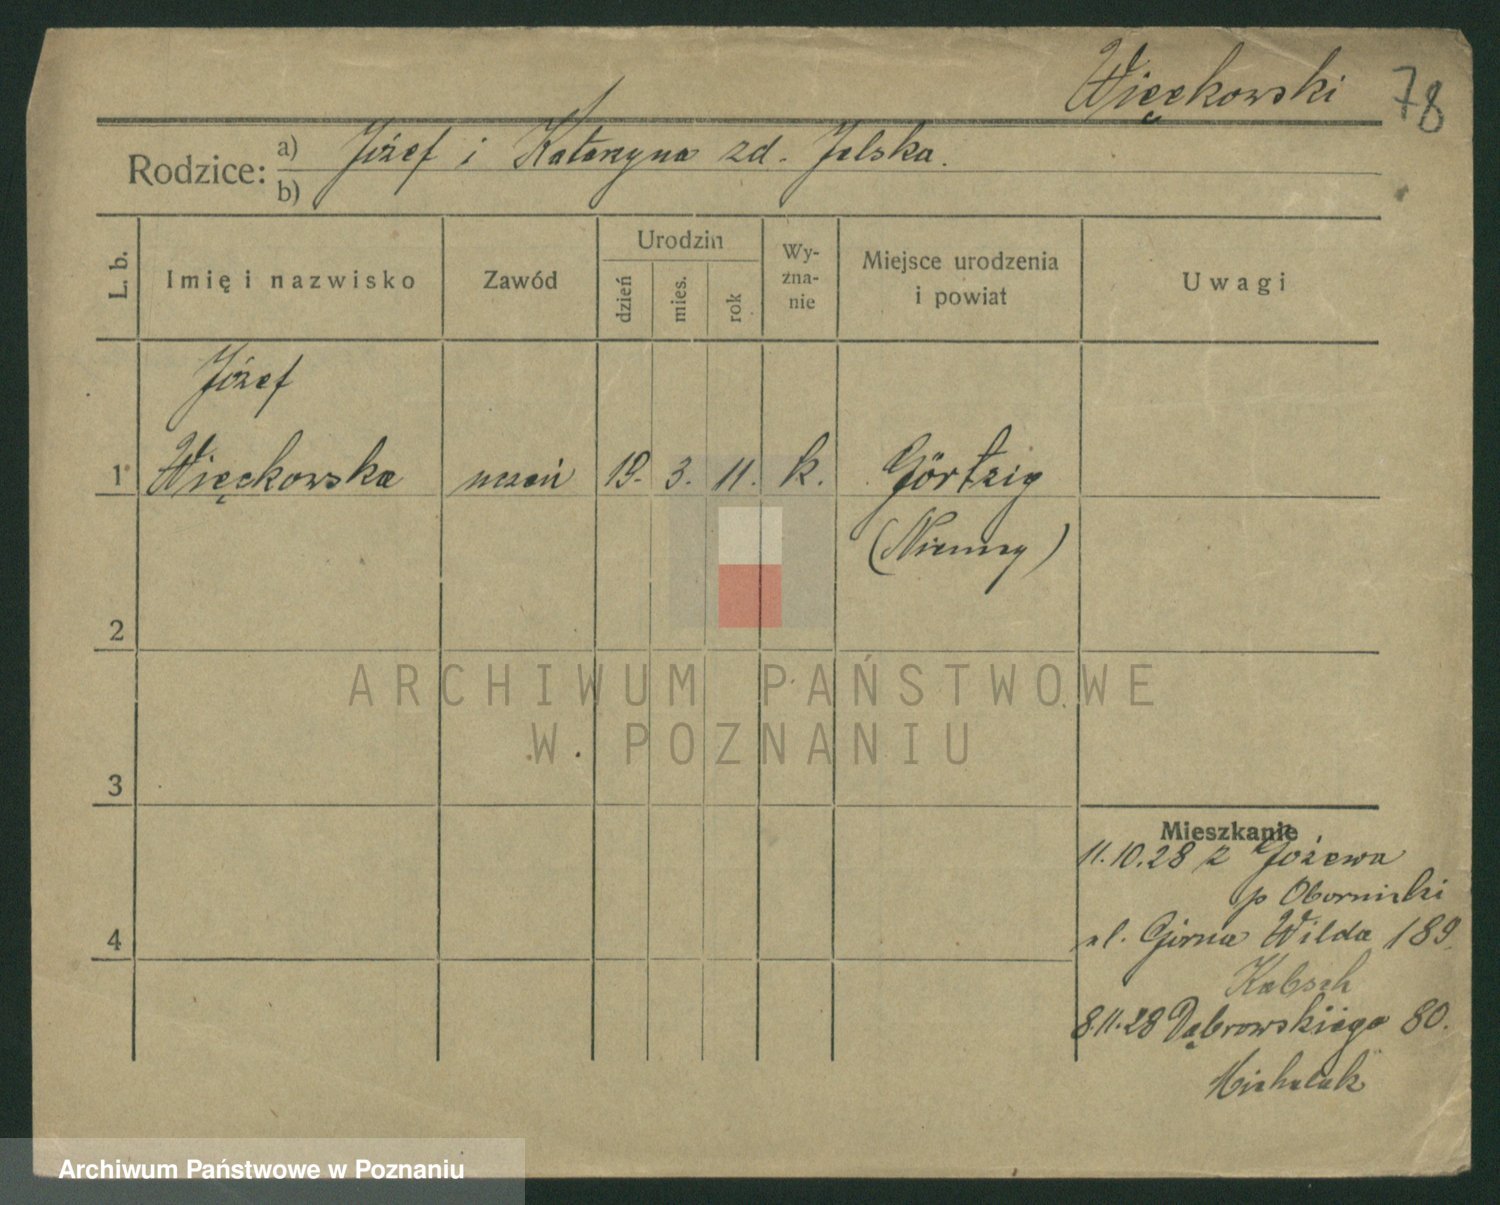 Więckowski 78
Rodzice: a) Józef i Katarzyna zd. Jelska.
b)
L. b. Imię i nazwisko Zawód Urodzin dzień mies. rok Wy-zna-nie Miejsce urodzenia i powiat Uwagi
Józef
1 Więckowska uczeń 19. 3. 11. k. Görtzig
(Niemcy)
2
ARCHIWUM PAŃSTWOWE
W POZNANIU
3
Mieszkanie
11.10.28 z Józewa
p Obornicki
ul. Górna Wilda 189.
4
Kabsch
8.11.28 Dąbrowskiego 80.
Michalak
Archiwum Państwowe w Poznaniu